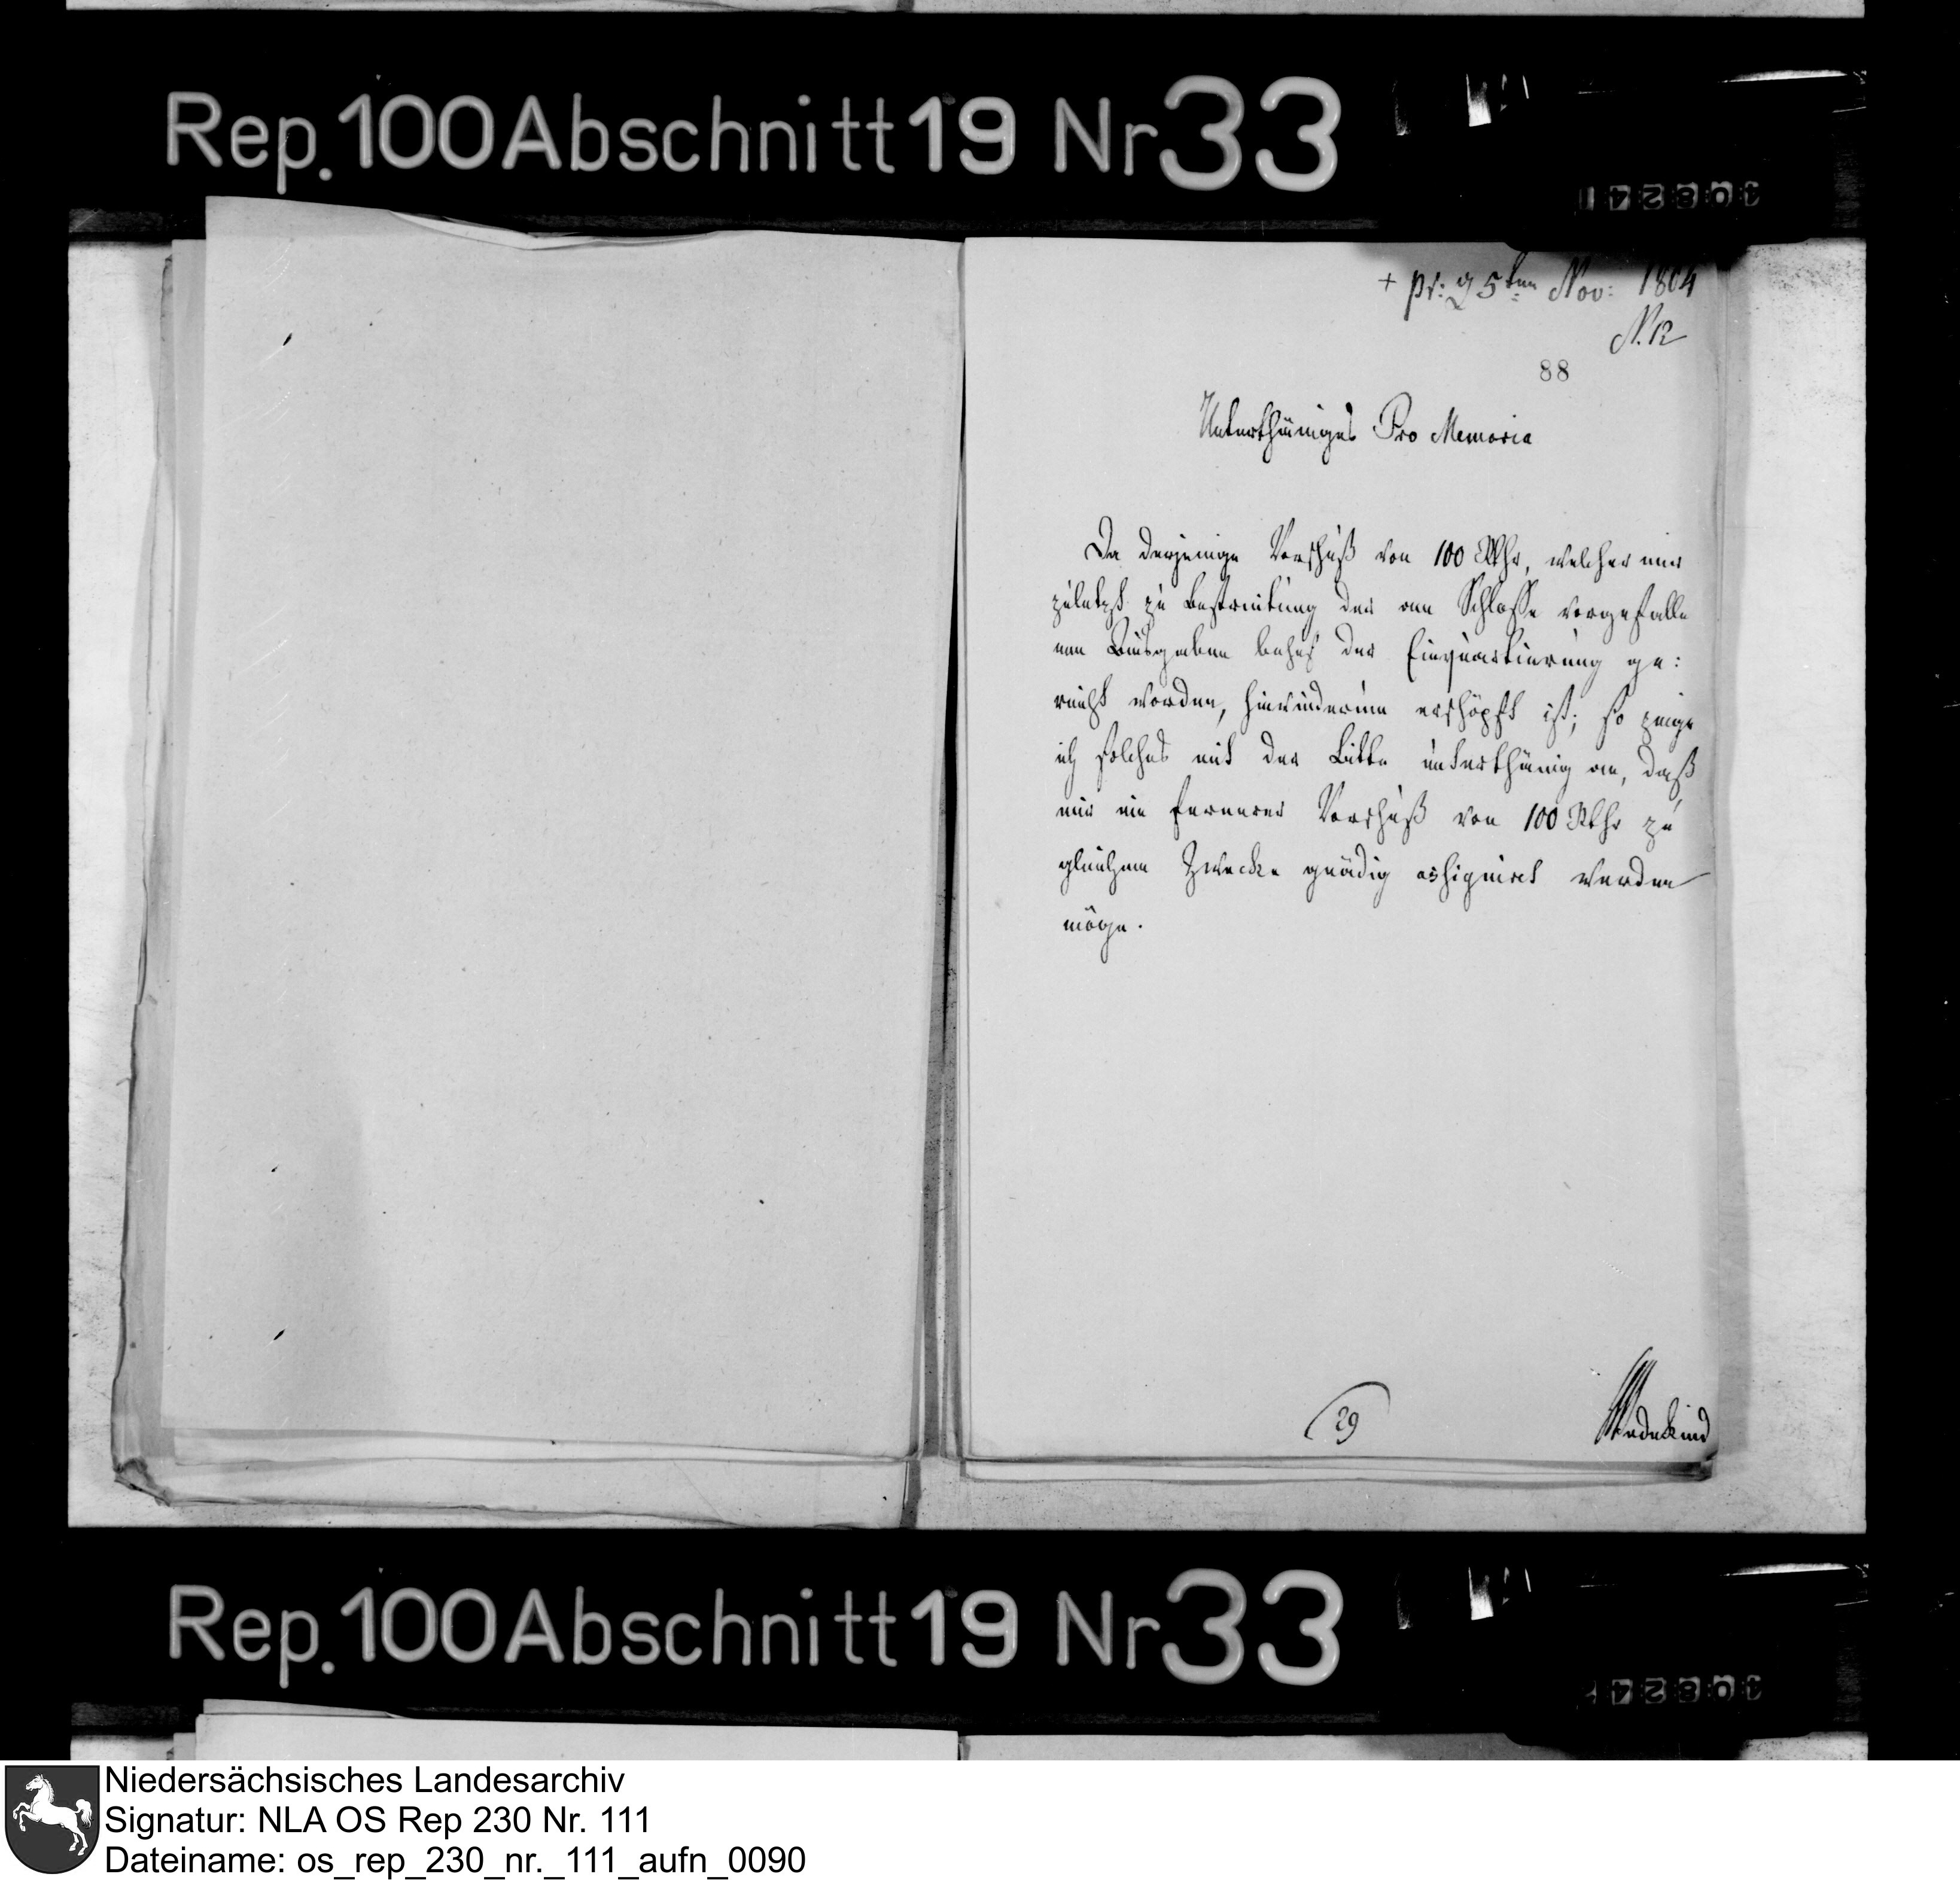 Rep. 100 Abschnitt 19 Nr 33
108241
+ pr: d 5ten Nov: 1804
N. 12
88
Unterthäniges Pro Memoria
Da derjenige Vorschuß von 100 Rthr, welcher mir
zuletzt zu Bestreitung der am Schlosse vorgefalle
nen Ausgaben behuf der Einquartierung ge:
reicht worden, hinwiederum erschöpft ist; so zeige
ich solches mit der Bitte unterthänig an, daß
mir ein fernerer Vorschuß von 100 Rthr zu
gleichem Zwecke gnädig assignirt werden
möge.
29
Wedekind
Rep. 100 Abschnitt 19 Nr 33
Niedersächsisches Landesarchiv
Signatur: NLA OS Rep 230 Nr. 111
Dateiname: os_rep_230_nr._111_aufn_0090